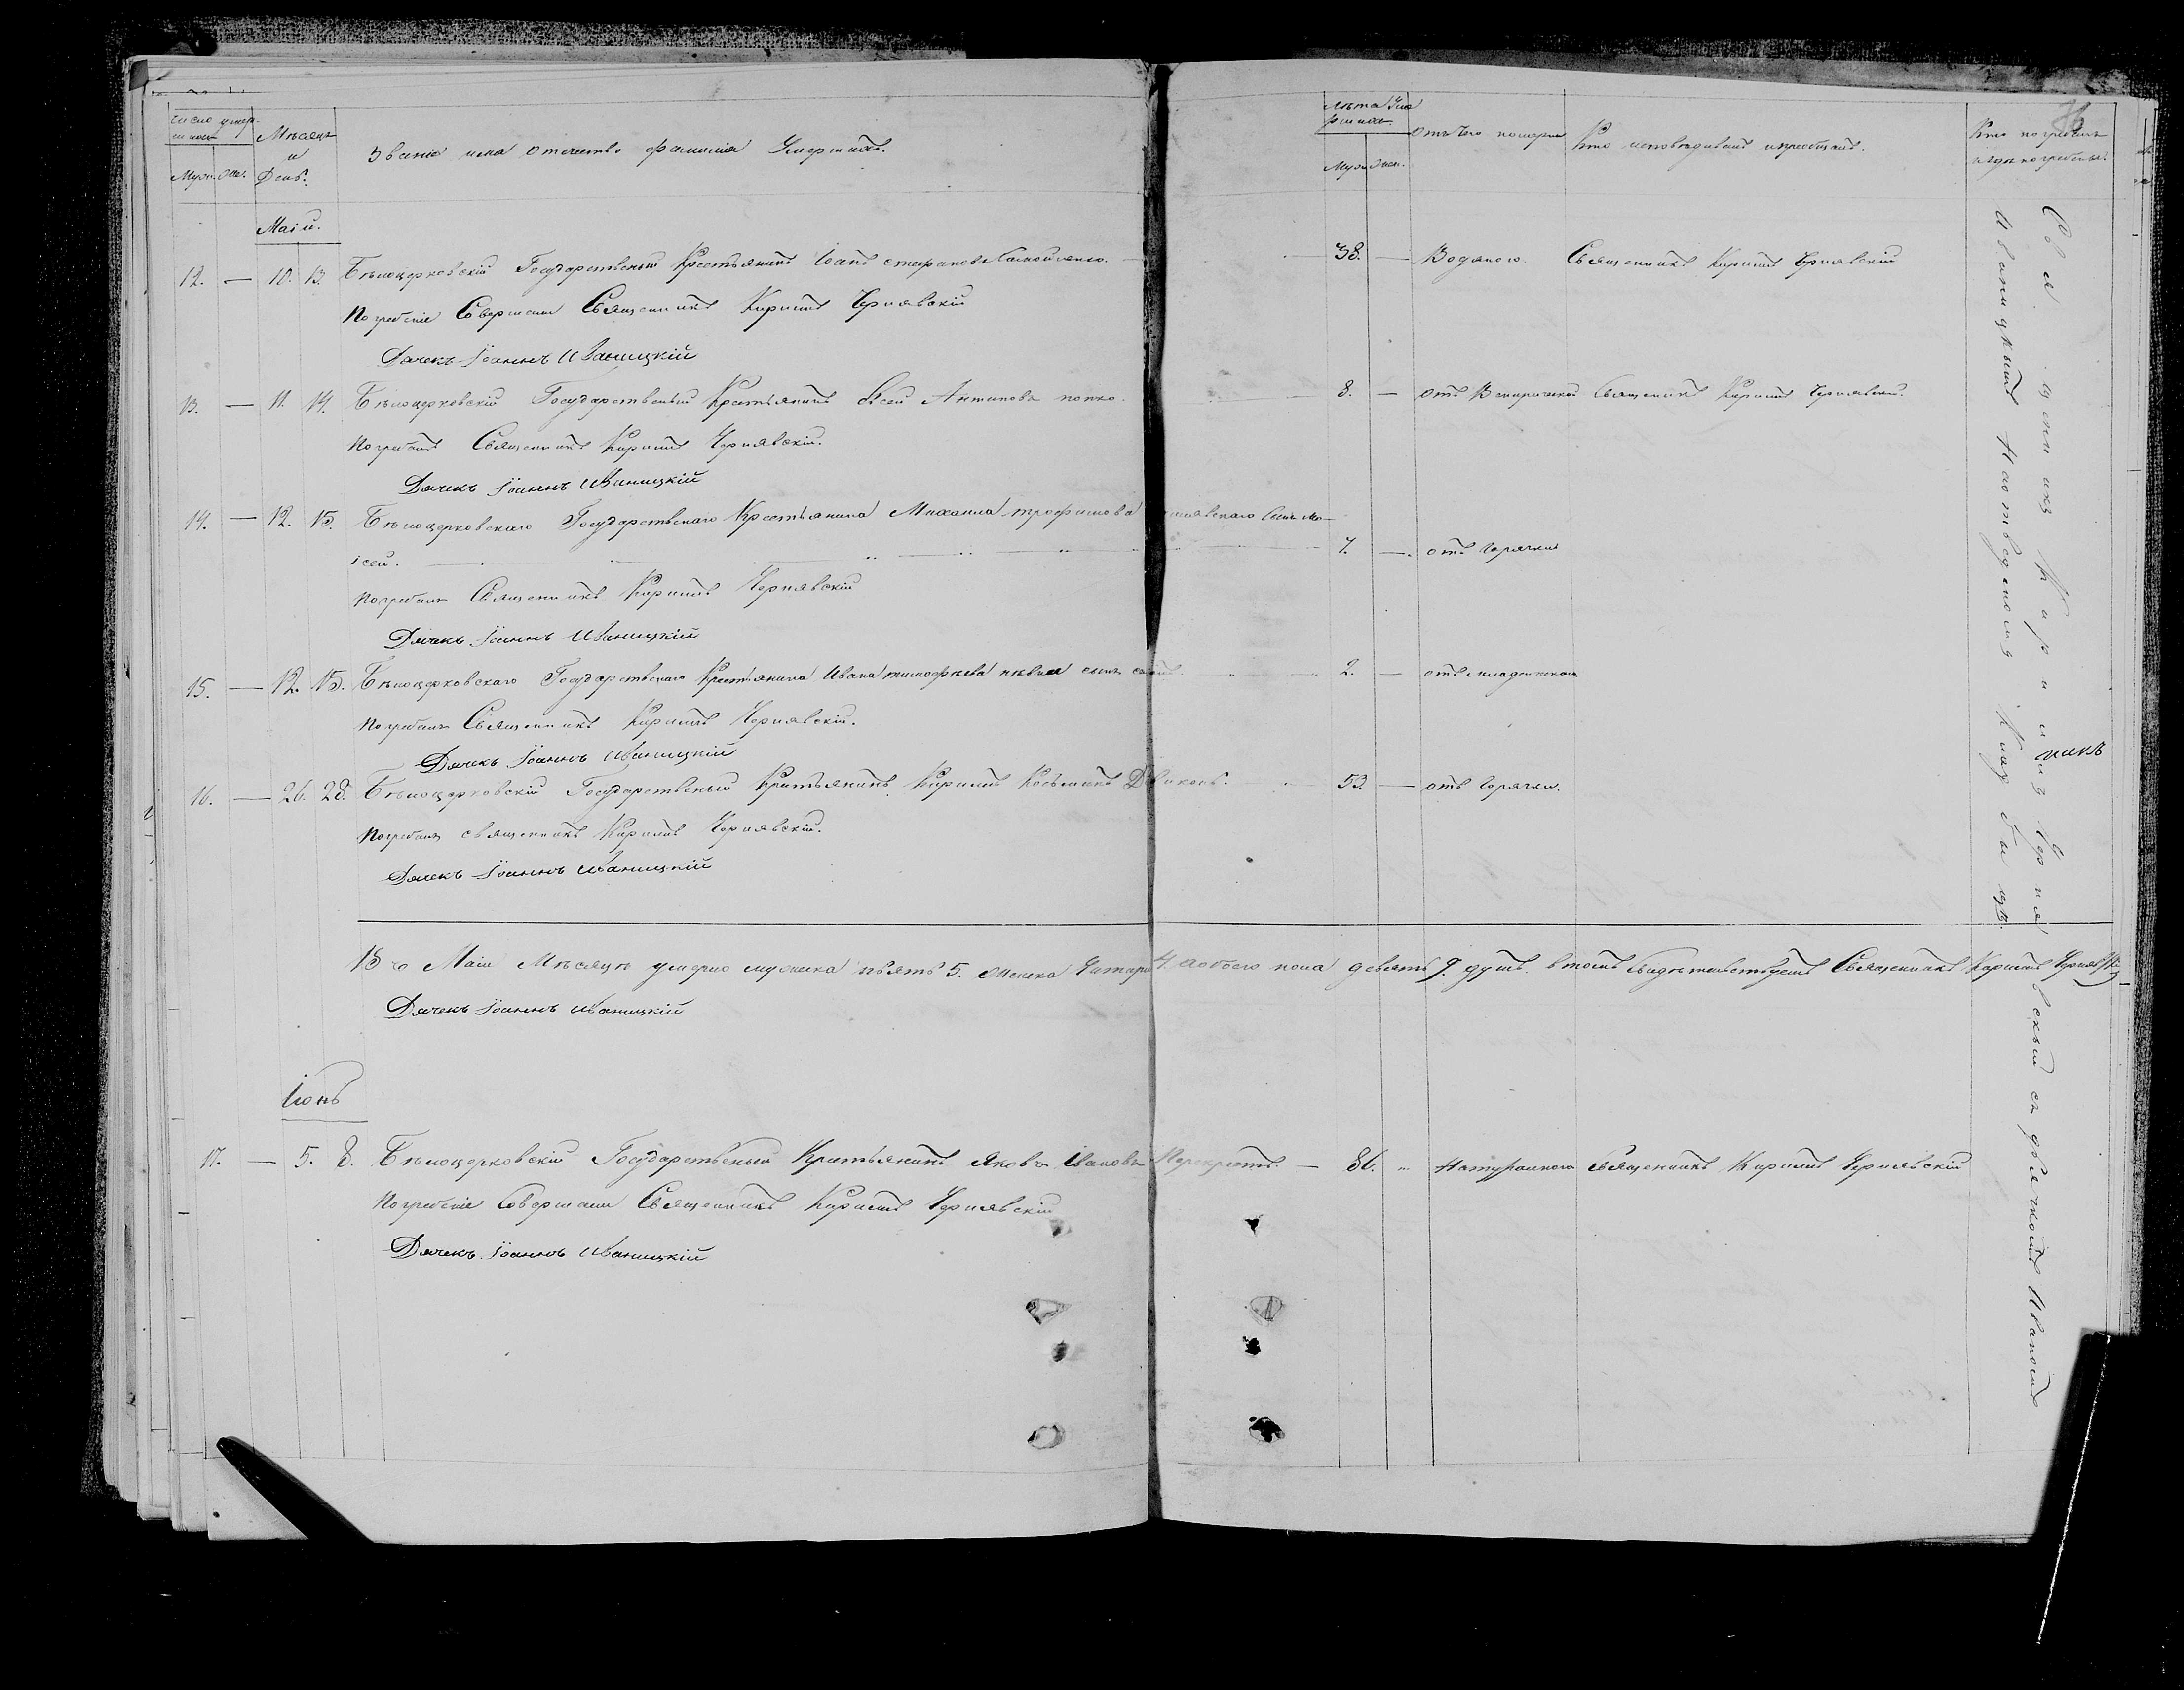 76
Число умер-
шихъ
Мѣсяцъ
и
День.
Муж. Жен.
Званіе имя отечество фамилія Умершихъ.
Лѣта Уме
ршихъ.
Муж. Жен.
Отъ Чего померъ
Кто исповѣдывалъ и пріобщалъ.
Кто погребалъ
и гдѣ погребены.
Маій.
12. — 10. 13. Бѣлоцерковскій Государственый Крестьянинъ Іоанъ Стефановъ — 38. — Водяного. Священникъ Кирилъ Чернявскій
Погребеніе Совершалъ Священникъ Кирилъ Чернявскій
Дячекъ Іоаннъ Иваницкій
13. — 11. 14. Бѣлоцерковскій Государственый Крестьянинъ Антиповъ попко. — 8. — отъ Священикъ Кирилъ Чернявскій.
Погребалъ Священникъ Кирилъ Чернявскій.
Дячекъ Іоаннъ Иваницкій
14. — 12. 15. Бѣлоцерковскаго Государственаго Крестьянина Михаила трофимова нявскаго Сынъ Мо-
ісей. — 7. — отъ Горячки
Погребалъ Священникъ Кирилъ Чернявскій
Дячекъ Іоаннъ Иваницкій
15. — 12. 15. Бѣлоцерковскаго Государственаго Крестьянина Ивана тимофѣева сынъ 2. — отъ младенческой
Погребалъ Священникъ Кирилъ Чернявскій.
Дячекъ Іоаннъ Иваницкій
16. — 26. 28. Бѣлоцерковскій Государственый Крестьянинъ Кирилъ Косьминъ 53. — отъ Горячки.
Погребалъ священникъ Кирилъ Чернявскій.
Дячекъ Іоаннъ Иваницкій
Въ Маіи Мѣсяцѣ умерло мужска пьять 5. женска Читыри 4. а обоего пола девять 9. душъ. в томъ Свидѣтельствуетъ Священникъ Кирилъ Чернявскій
Дячекъ Іоаннъ Иваницкій
Іюнь
17. — 5. 8. Бѣлоцерковскій Государственый Крестьянинъ Яковъ Ивановъ Перекрестъ. — 86. „ Натуральною Священникъ Кирилъ Чернявскій
Погребеніе Совершалъ Священникъ Кирилъ Чернявскій
Дячекъ Іоаннъ Иваницкій
Священникъ Кирилъ Чернявскый съ дьячкомъ Иваномъ
Иваницкымъ На отведеномъ Кладбищѣ.
никъ